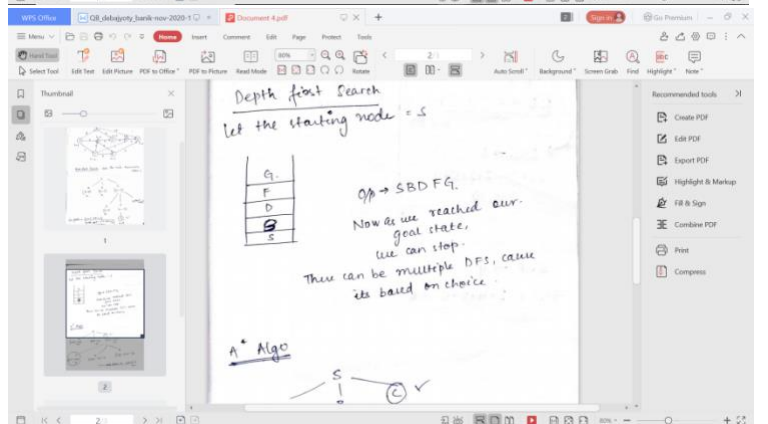 WPS Office
QB_debajyoty_banik-nov-2020-1
Document 4.pdf
Sign in
Go Premium
Menu
Home
Insert
Comment
Edit
Page
Protect
Tools
Hand Tool
Select Tool
Edit Text
Edit Picture
PDF to Office
PDF to Picture
Read Mode
80%
Rotate
2/3
Auto Scroll
Background
Screen Grab
Find
Highlight
Note
Thumbnail
1
2
Depth first Search
Let the starting node = S
G.
F
D
B
S
O/p → SBDFG.
Now as we reached our
goal state,
we can stop.
There can be multiple DFS, cause
its based on choice
A* Algo
S
C
Recommended tools
Create PDF
Edit PDF
Export PDF
Highlight & Markup
Fill & Sign
Combine PDF
Print
Compress
80%